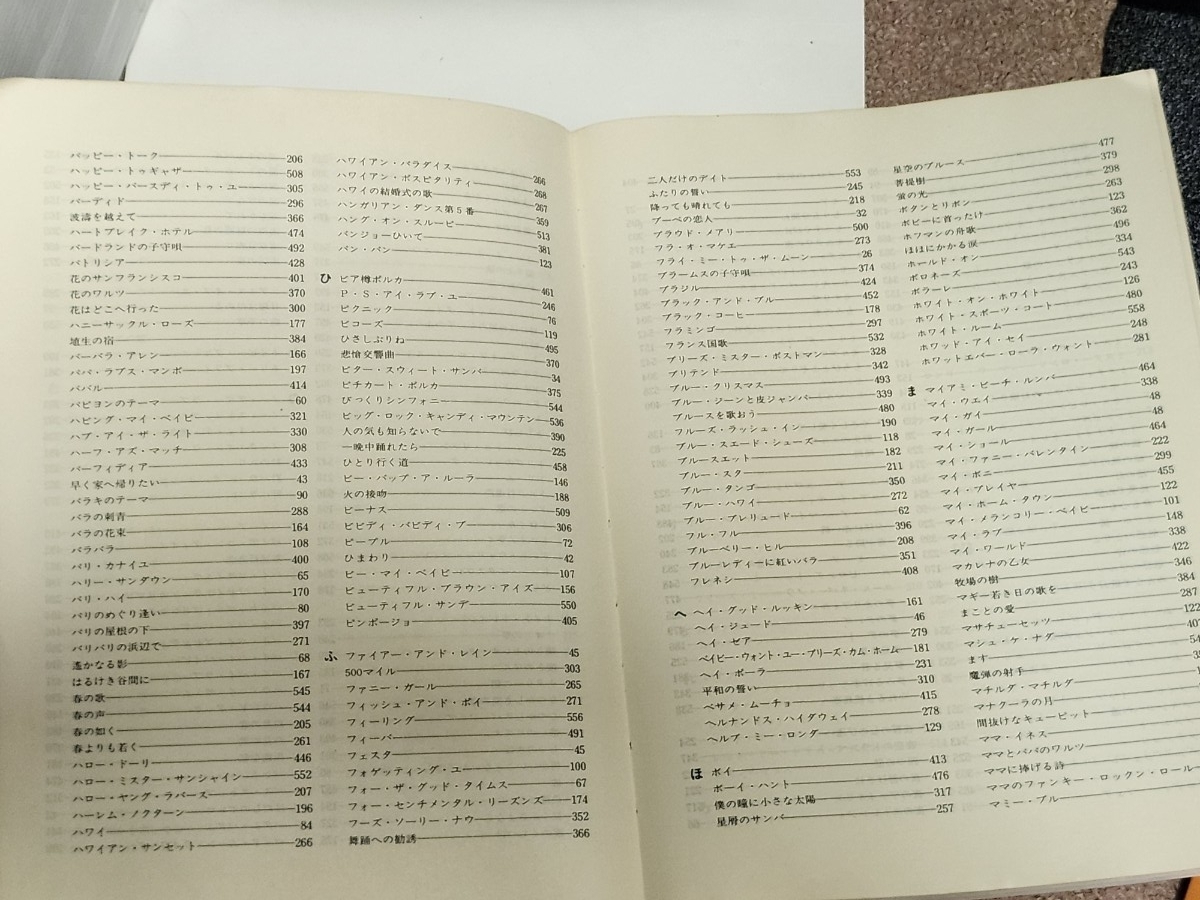 ハッピー・トーク 206
ハッピー・トゥギャザ 508
ハッピー・バースディ・トゥ・ユー 305
バーディド 296
波濤を越えて 366
ハートブレイク・ホテル 474
バードランドの子守唄 492
パトリシア 428
花のサンフランシスコ 401
花のワルツ 370
花はどこへ行った 300
ハニーサックル・ローズ 177
埴生の宿 384
バーバラ・アレン 166
パパ・ラブス・マンボ 197
ババル 414
パピヨンのテーマ 60
ハピング・マイ・ベイビ 321
ハブ・アイ・ザ・ライト 330
ハーフ・アズ・マッチ 308
パーフィディア 433
早く家へ帰りたい 43
バラキのテーマ 90
バラの刺青 288
バラの花束 164
バラバラ 108
パリ・カナイユ 400
ハリー・サンダウン 65
バリ・ハイ 170
パリのめぐり逢い 80
パリの屋根の下 397
パリパリの浜辺で 271
遙かなる影 68
はるけき谷間に 167
春の歌 545
春の声 544
春の如く 205
春よりも若く 261
ハロー・ドーリ 446
ハロー・ミスター・サンシャイン 552
ハロー・ヤング・ラバース 207
ハーレム・ノクターン 196
ハワイ 84
ハワイアン・サンセット 266
ハワイアン・パラダイス 266
ハワイアン・ホスピタリティ 268
ハワイの結婚式の歌 267
ハンガリアン・ダンス第5番 359
ハング・オン・スルーピー 513
バンジョーひいて 381
バン・バン 123
ひ ビア樽ポルカ 461
P・S・アイ・ラブ・ユー 246
ピクニック 76
ビコーズ 119
ひさしぶりね 495
悲愴交響曲 370
ビター・スウィート・サンバ 34
ピチカート・ポルカ 375
びっくりシンフォニー 544
ビッグ・ロック・キャンディ・マウンテン 536
人の気も知らないで 390
一晩中踊れたら 225
ひとり行く道 458
ビー・バップ・ア・ルーラ 146
火の接吻 188
ビーナス 509
ビビディ・バビディ・ブー 306
ピープル 72
ひまわり 42
ビー・マイ・ベイビー 107
ビューティフル・ブラウン・アイズ 156
ビューティフル・サンデー 550
ピンポージョ 405
ふ ファイアー・アンド・レイン 45
500マイル 303
ファニー・ガール 265
フィッシュ・アンド・ポイ 271
フィーリング 556
フィーバ 491
フェスタ 45
フォゲッティング・ユー 100
フォー・ザ・グッド・タイムス 67
フォー・センチメンタル・リーズンズ 174
フーズ・ソーリー・ナウ 352
舞踊への勧誘 366
二人だけのデイト 553
ふたりの誓い 245
降っても晴れても 218
ブーベの恋人 32
プラウド・メアリ 500
フラ・オ・マケエ 273
フライ・ミー・トゥ・ザ・ムーン 26
ブラームスの子守唄 374
ブラジル 424
ブラック・アンド・ブルー 452
ブラック・コーヒー 178
フラミンゴ 297
フランス国歌 532
プリーズ・ミスター・ポストマン 328
プリテンド 342
ブルー・クリスマス 493
ブルー・ジーンと皮ジャンパー 339
ブルースを歌おう 480
フルーズ・ラッシュ・イン 190
ブルー・スエード・シューズ 118
ブルースエット 182
ブルー・スター 211
ブルー・タンゴ 350
ブルー・ハワイ 272
ブルー・プレリュード 62
フル・フル 396
ブルーベリー・ヒル 208
ブルーレディーに紅いバラ 351
フレネシー 408
へ ヘイ・グッド・ルッキン 161
ヘイ・ジュード 46
ヘイ・ゼアー 279
ベイビー・ウォント・ユー・プリーズ・カム・ホーム 181
ヘイ・ポーラ 231
平和の誓い 310
ベサメ・ムーチョ 415
ヘルナンドス・ハイダウェイ 278
ヘルプ・ミー・ロンダ 129
ほ ボイ 413
ボーイ・ハント 476
僕の瞳に小さな太陽 317
星屑のサンバ 257
星空のブルース 477
菩提樹 379
蛍の光 298
ボタンとリボン 263
ボビーに首ったけ 123
ホフマンの舟歌 362
ほほにかかる涙 496
ホールド・オン 334
ポロネーズ 543
ボラーレ 243
ホワイト・オン・ホワイト 126
ホワイト・スポーツ・コート 480
ホワイト・ルーム 558
ホワッド・アイ・セイ 248
ホワットエバー・ローラ・ウォント 281
ま マイアミ・ビーチ・ルンバ 464
マイ・ウエイ 338
マイ・ガイ 48
マイ・ガール 48
マイ・ショール 464
マイ・ファニー・バレンタイン 222
マイ・ボニー 299
マイ・プレイヤ 455
マイ・ホーム・タウン 122
マイ・メランコリー・ベイビー 101
マイ・ラブ 148
マイ・ワールド 338
マカレナの乙女 422
牧場の樹 346
マギー若き日の歌を 384
まことの愛 287
マサチューセッツ 122
マシュ・ケ・ナダ
ます
魔弾の射手
マチルダ・マチルダ
マナクーラの月
間抜けなキューピット
ママ・イネス
ママとパパのワルツ
ママに捧げる詩
ママのファンキー・ロックン・ロール
マミー・ブルー